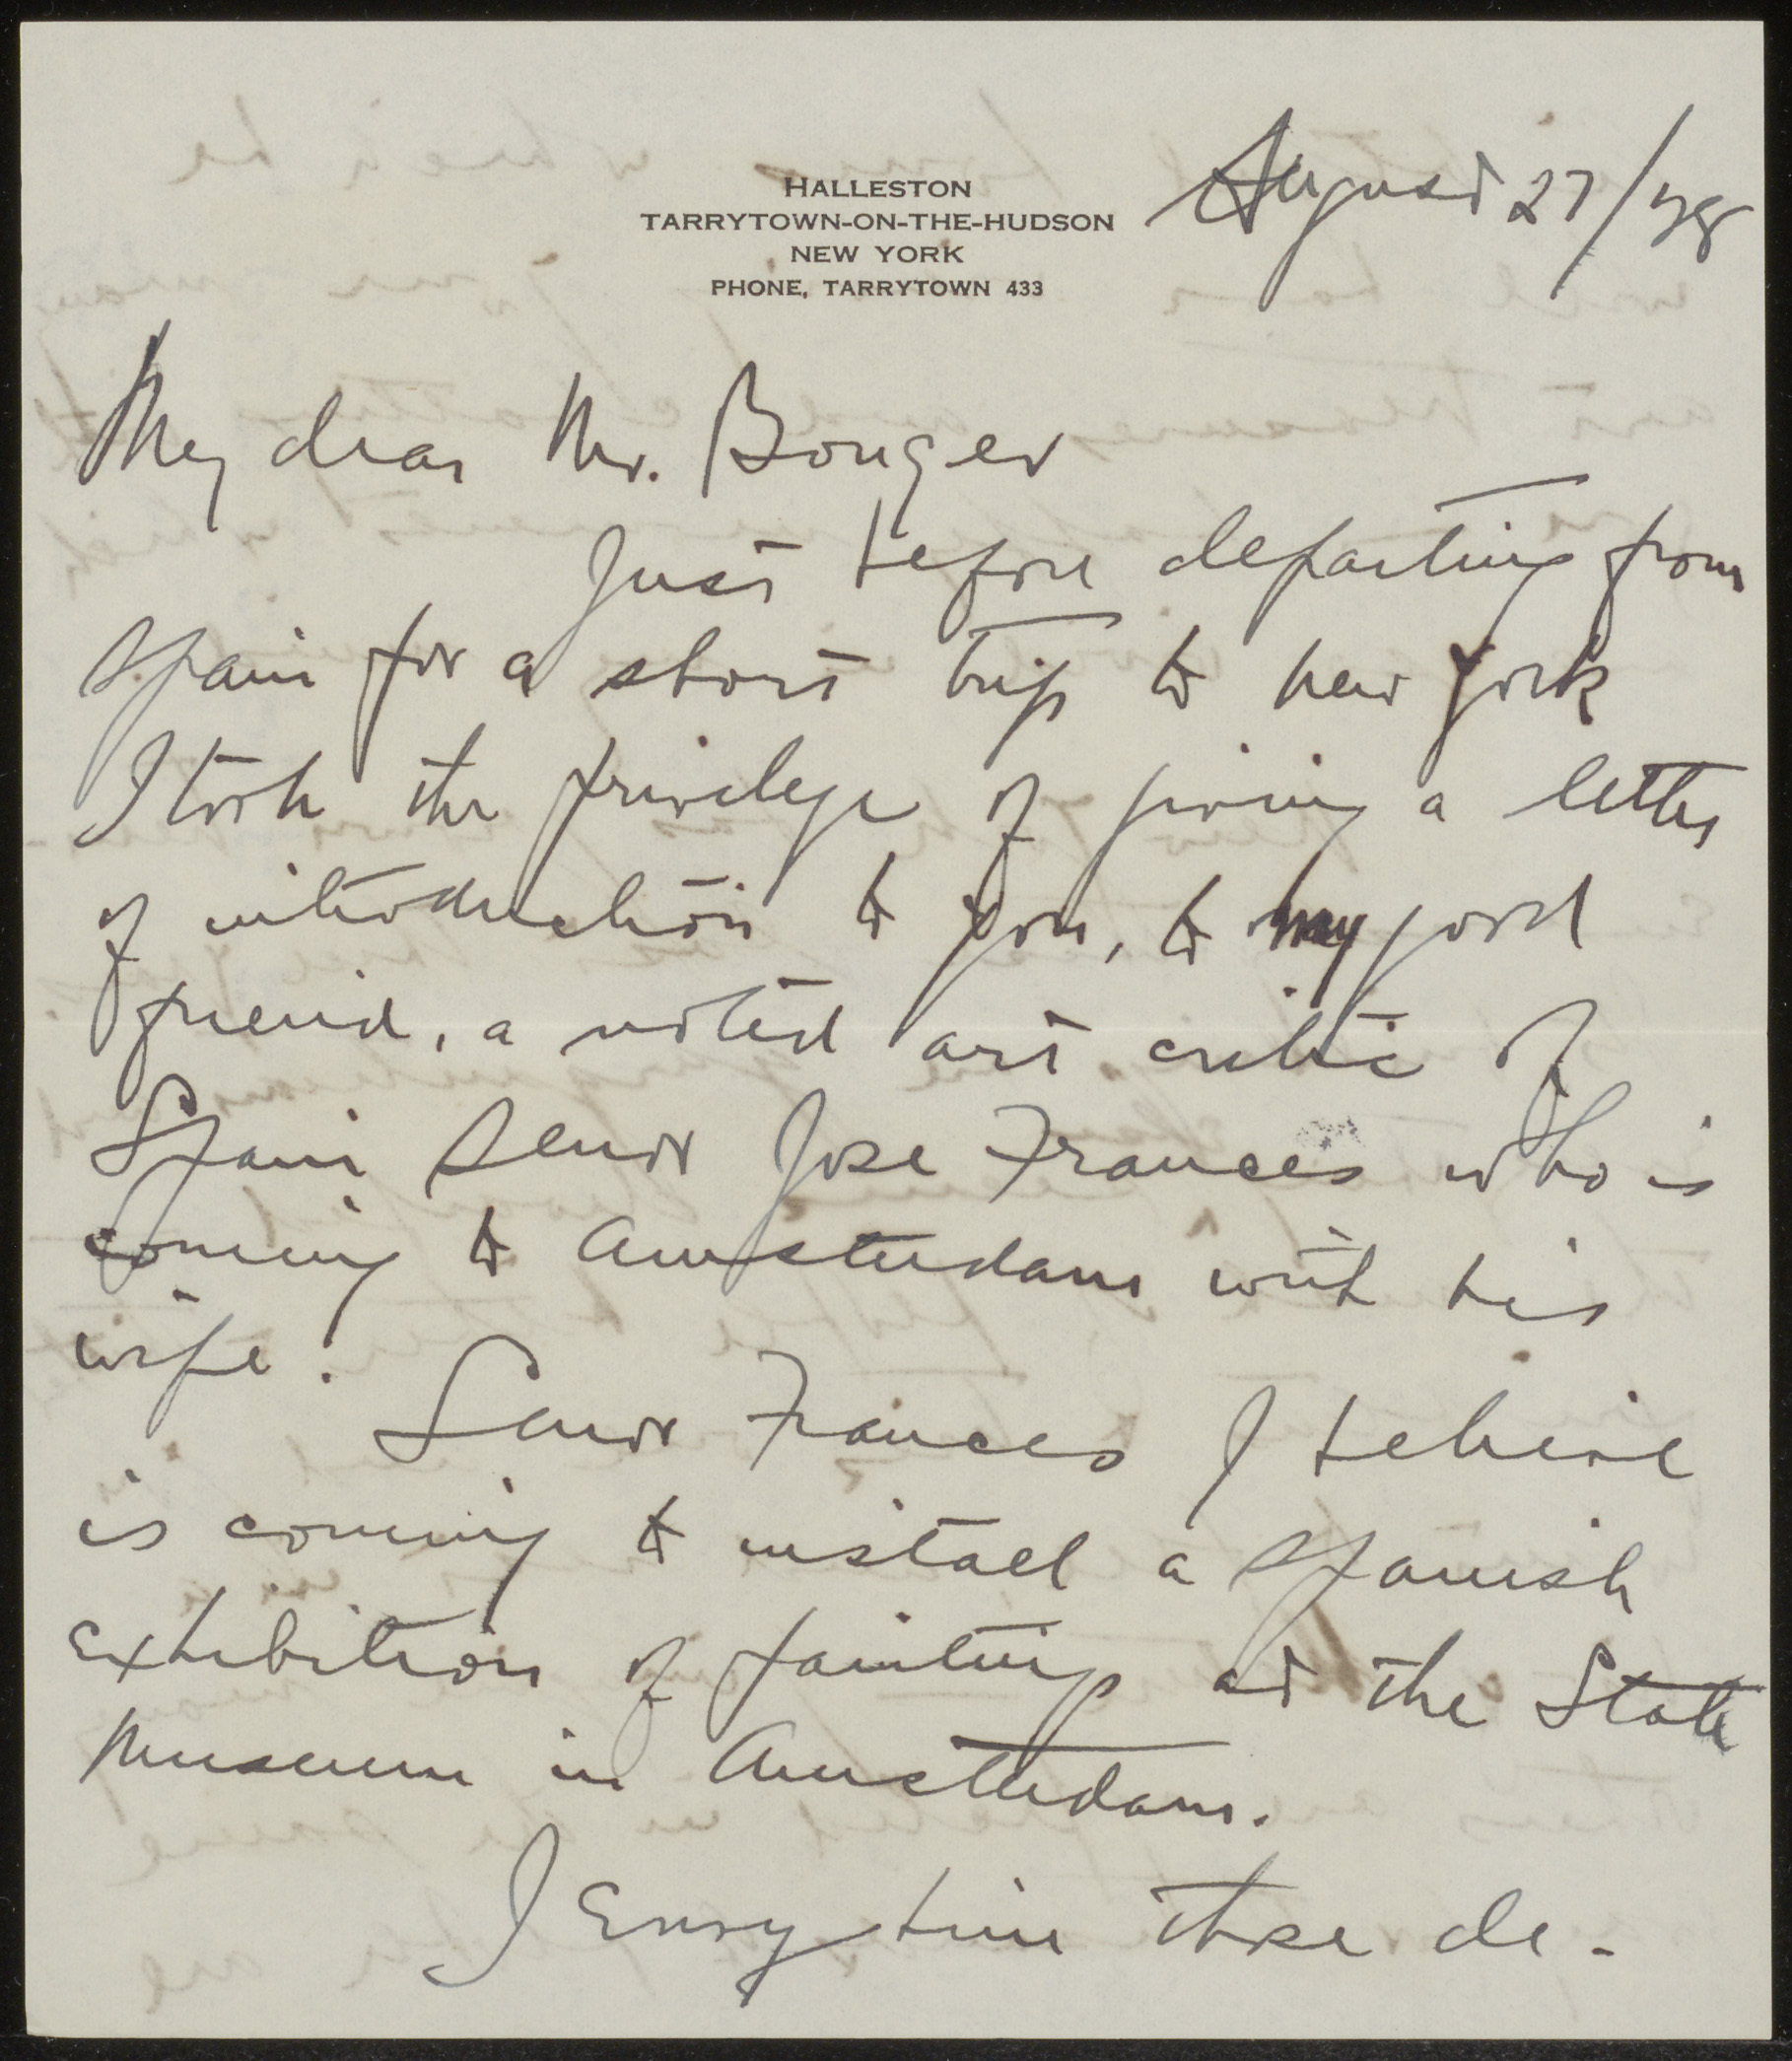 HALLESTON
TARRYTOWN-ON-THE-HUDSON
NEW YORK
PHONE, TARRYTOWN 433
August 27/28
My dear Mr. Bonger
Just before departing from
Spain for a short trip to new york
I took the privilege of giving a letter
of introduction to you, to my good
friend, a noted art critic of
Spain Senor Jose Frances who is
coming to Amsterdam with his
wife. Senor Frances I believe
is coming to install a Spanish
exhibition of paintings at the State
Museum in Amsterdam.
I envy him those de-